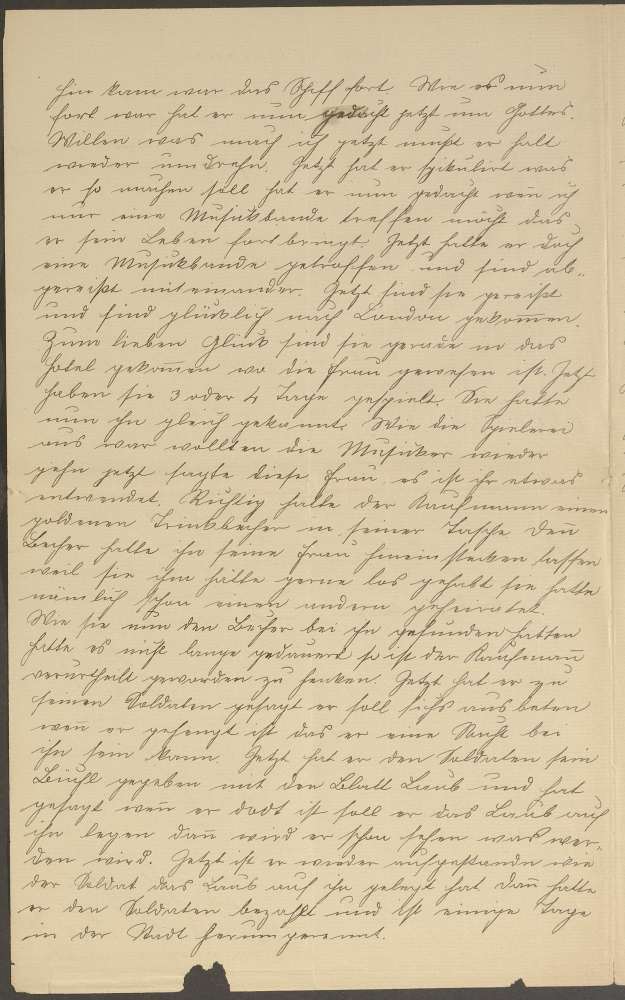 hin kam war das Schiff fort. Wie es nun
fort war hat er nun gedacht jetzt um Gottes-
Willen was mach ich jetzt mußt er halt
wieder umdrehn. Jetzt hat er spikulirt was
er so machen soll hat er nun gedacht wen̄ ich
nur eine Musickbande treffen möcht das
er sein Leben fortbringt. Jetzt hatte er doch
eine Musickbande getroffen und sind ab-
gereißt miteinander. Jetzt sind sie gereißt
und sind glücklich nach London gekom̄en.
Zum lieben Glück sind sie gerade in das
Hotel gekom̄en wo die Frau gewesen ist. Jetzt
haben sie 3 oder 4 Tage gespielt. Sie hatte
nun ihn gleich gekannt. Wie die Spielerei
aus war wollten die Musicker wieder
gehn jetzt sagte diese Frau, es ist ihr etwas
entwendet. Richtig hatte der Kaufmann einen
goldenen Trinkbecher in seiner Tasche. Den̄
Becher hatte ihn seine Frau hineinstecken lassen
weil sie ihn hätte gerne los gehabt sie hatte
nämlich schon einen andern geheiratet.
Wie sie nun den Becher bei ihn gefunden hatten
hatte es nicht lange gedauert so ist der Kaufman̄
verurtheilt geworden zu henken. Jetzt hat er zu
seinen Soldaten gesagt er soll sichs ausbeten
wen̄ er gehengt ist das er eine Nacht bei
ihn sein kann. Jetzt hat er den Soldaten sein
Büchl gegeben mit den Blatt Laub und hat
gesagt wen̄ er dodt ist soll er das Laub auf
ihn legen dan̄ wird er schon sehen was wer-
den wird. Jetzt ist er wieder aufgestanden wie
der Soldat das Laub auf ihn gelegt hat. Dan̄ hatte
er den Soldaten bezahlt und ist einige Tage
in der Stadt herumgerannt.